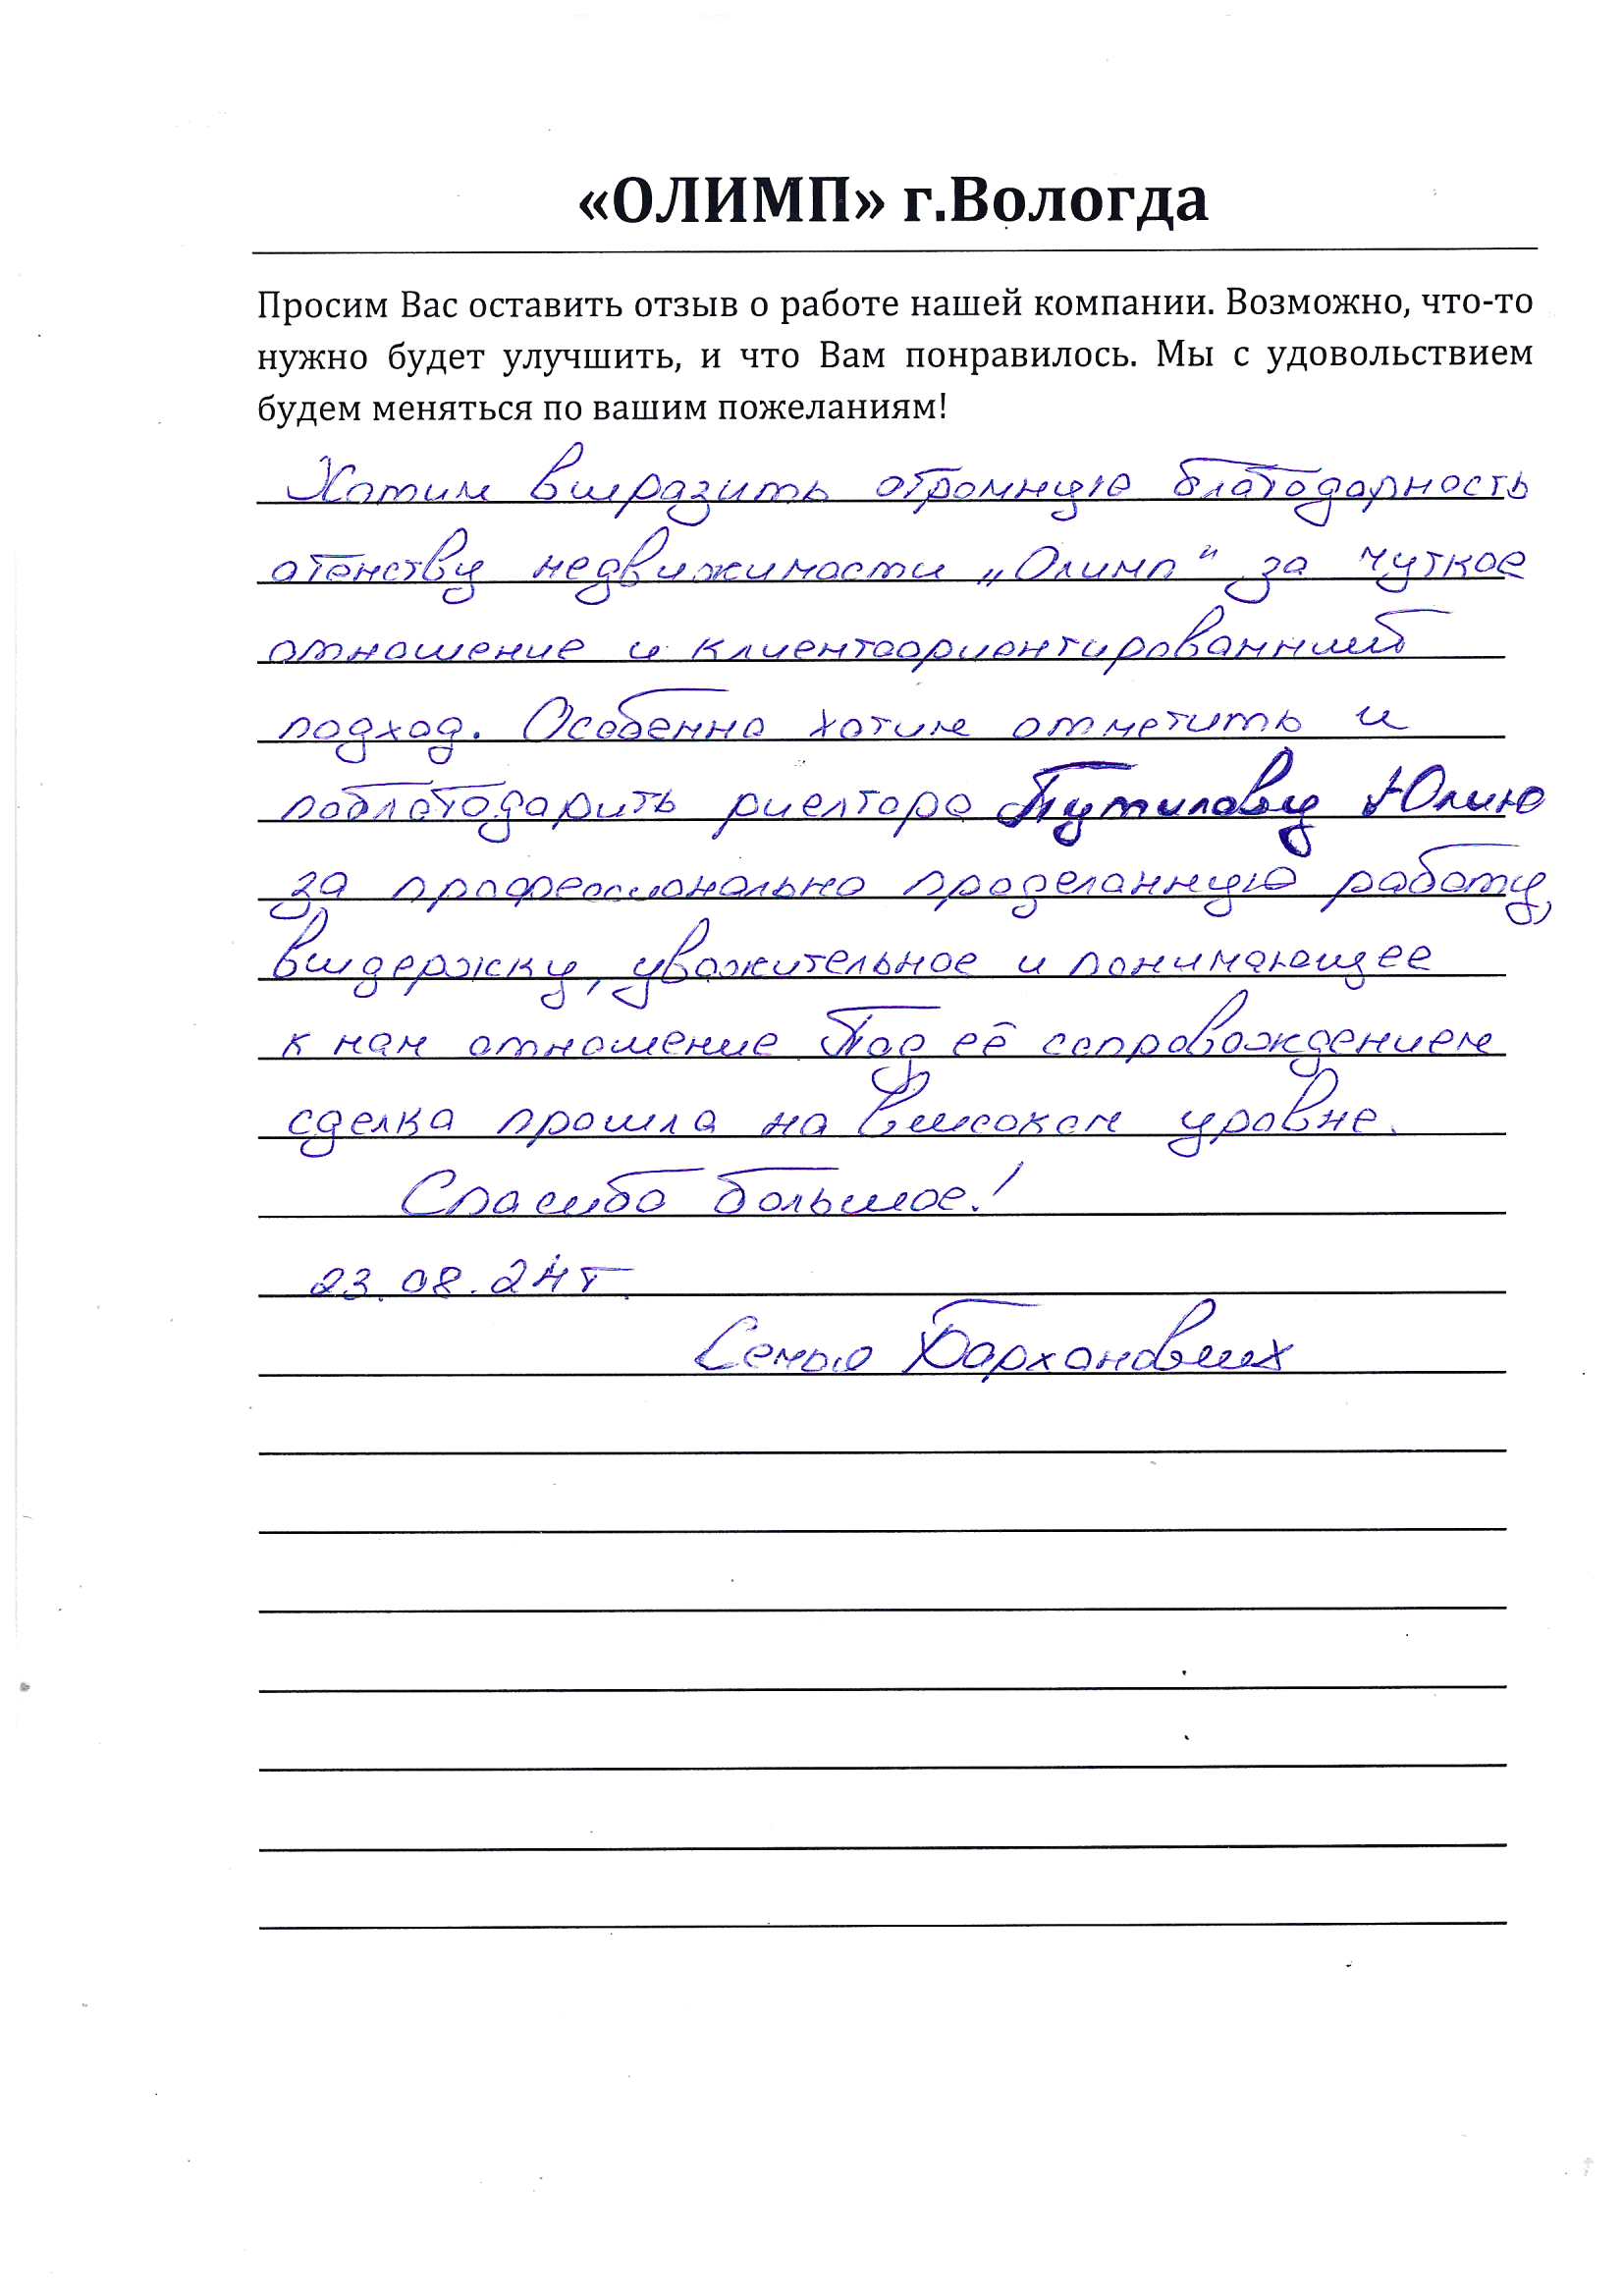 «ОЛИМП» г.Вологда
Просим Вас оставить отзыв о работе нашей компании. Возможно, что-то
нужно будет улучшить, и что Вам понравилось. Мы с удовольствием
будем меняться по вашим пожеланиям!
Хотим выразить огромную благодарность
агенству недвижимости „Олимп“ за чуткое
отношение и клиентоориентированный
подход. Особенно хотим отметить и
поблагодарить риелтора Путилову Юлию
за профессионально проделанную работу,
выдержку, уважительное и понимающее
к нам отношение Под её сопровождением
сделка прошла на высоком уровне.
Спасибо большое!
23.08.24г.
Семья Бархановых